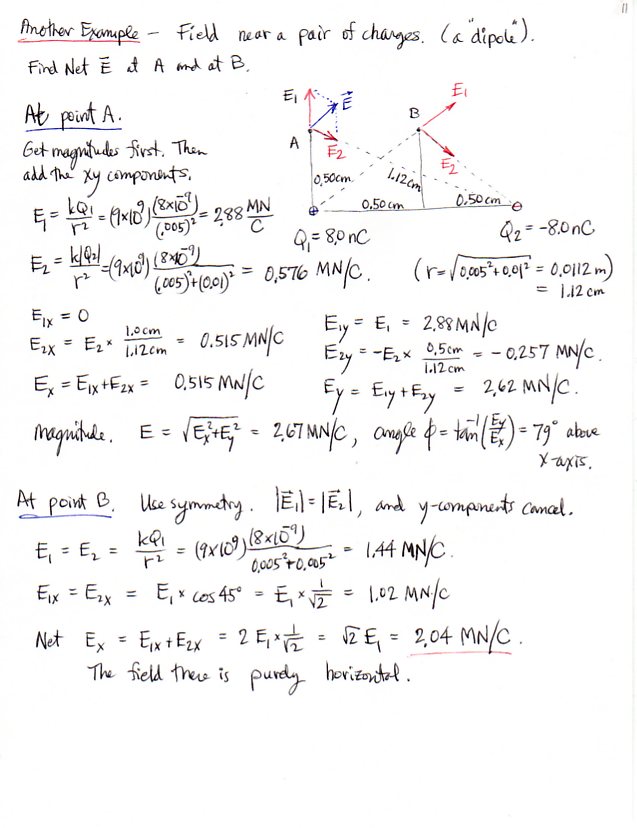 11
Another Example – Field near a pair of charges. (a "dipole").
Find Net E⃗ at A and at B.
At point A.
Get magnitudes first. Then
add the xy components.
E₁ = kQ₁/r² = (9×10⁹) (8×10⁻⁹)/(.005)² = 2.88 MN/C
E₂ = k|Q₂|/r² = (9×10⁹) (8×10⁻⁹)/((.005)²+(0.01)²) = 0.576 MN/C.
(r = √(0.005²+0.01²) = 0.0112 m)
= 1.12 cm
E₁
E⃗
A
E₂
B
E₁
E₂
0.50cm
1.12cm
0.50cm
0.50cm
⊕
⊖
Q₁ = 8.0 nC
Q₂ = -8.0 nC
E₁ₓ = 0
E₂ₓ = E₂ × 1.0cm/1.12cm = 0.515 MN/C
Eₓ = E₁ₓ+E₂ₓ = 0.515 MN/C
E₁y = E₁ = 2.88 MN/C
E₂y = -E₂ × 0.5cm/1.12cm = -0.257 MN/C.
Ey = E₁y + E₂y = 2.62 MN/C.
Magnitude. E = √(Eₓ²+Ey²) = 2.67 MN/C, angle ϕ = tan⁻¹(Ey/Eₓ) = 79° above
x-axis.
At point B. Use symmetry. |E⃗₁| = |E⃗₂|, and y-components cancel.
E₁ = E₂ = kQ₁/r² = (9×10⁹) (8×10⁻⁹)/(0.005²+0.005²) = 1.44 MN/C.
E₁ₓ = E₂ₓ = E₁ × cos 45° = E₁ × 1/√2 = 1.02 MN/C
Net Eₓ = E₁ₓ + E₂ₓ = 2 E₁ × 1/√2 = √2 E₁ = 2.04 MN/C.
The field there is purely horizontal.